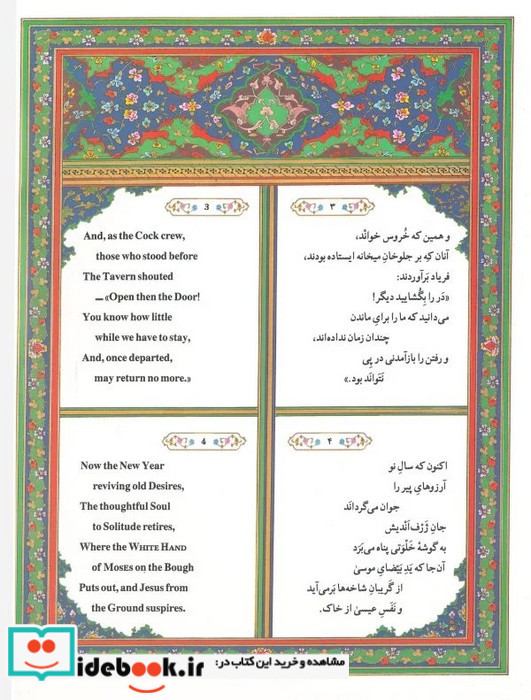 3
And, as the Cock crew,
those who stood before
The Tavern shouted
—«Open then the Door!
You know how little
while we have to stay,
And, once departed,
may return no more.»
۳
و همین که خُروس خوانْد،
آنان که بر جلوخانِ میخانه ایستاده بودند،
فریاد بَرآوردند:
«دَر را بِگُشایید دیگر!
می‌دانید که ما را برایِ ماندن
چندان زمان نداده‌اند،
و رفتن را بازآمدنی در پِی
نَتَوانَد بود.»
4
Now the New Year
reviving old Desires,
The thoughtful Soul
to Solitude retires,
Where the WHITE HAND
of MOSES on the Bough
Puts out, and Jesus from
the Ground suspires.
۴
اکنون که سالِ نو
آرزوهایِ پیر را
جوان می‌گردانَد
جانِ ژَرْف‌اَنْدیش
به گوشهٔ خَلْوَتی پناه می‌بَرَد
آن‌جا که یَدِ بَیْضایِ موسیٰ
از گَریبانِ شاخه‌ها بَرمی‌آید
و نَفَسِ عیسیٰ از خاک.
idebook.ir
مشاهده و خرید این کتاب در: